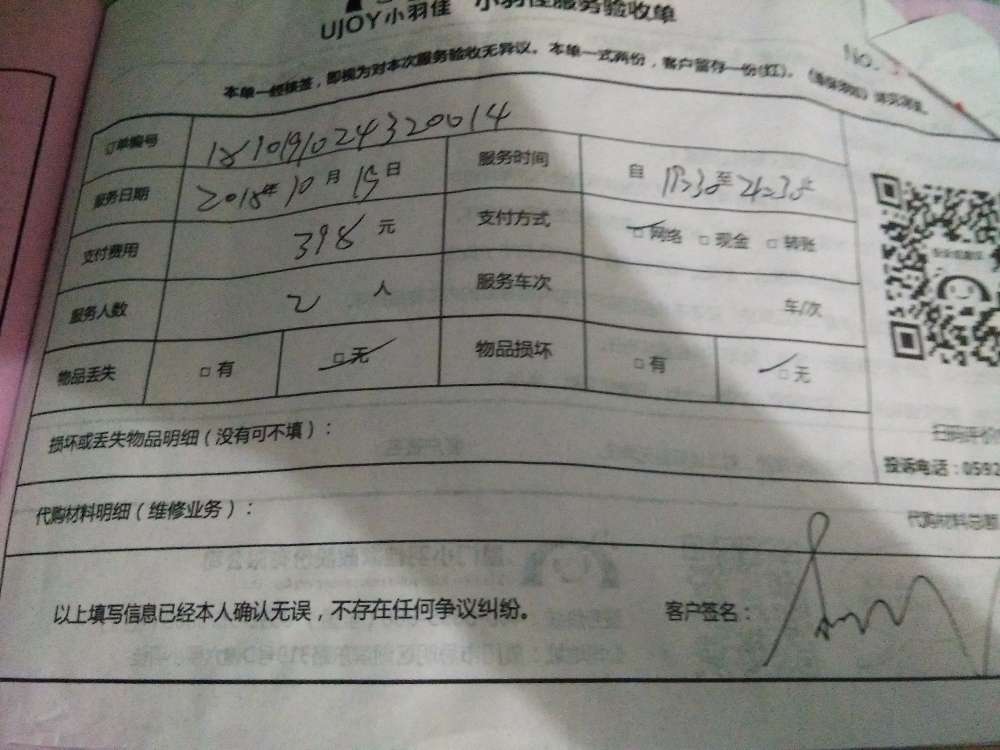 UJOY小羽佳 小羽佳服务验收单
No.
本单一经接签，即视为对本次服务验收无异议。本单一式两份，客户留存一份(红)。
订单编号 1810191024320014
服务日期 2018年10月19日 服务时间 自 17:30 至 21:30
支付费用 398元 支付方式 网络 □现金 □转账
服务人数 2 人 服务车次 车/次
物品丢失 □有 □无 物品损坏 □有 □无
损坏或丢失物品明细（没有可不填）：
扫码评价
投诉电话：0592
代购材料明细（维修业务）：
代购材料总
以上填写信息已经本人确认无误，不存在任何争议纠纷。 客户签名：